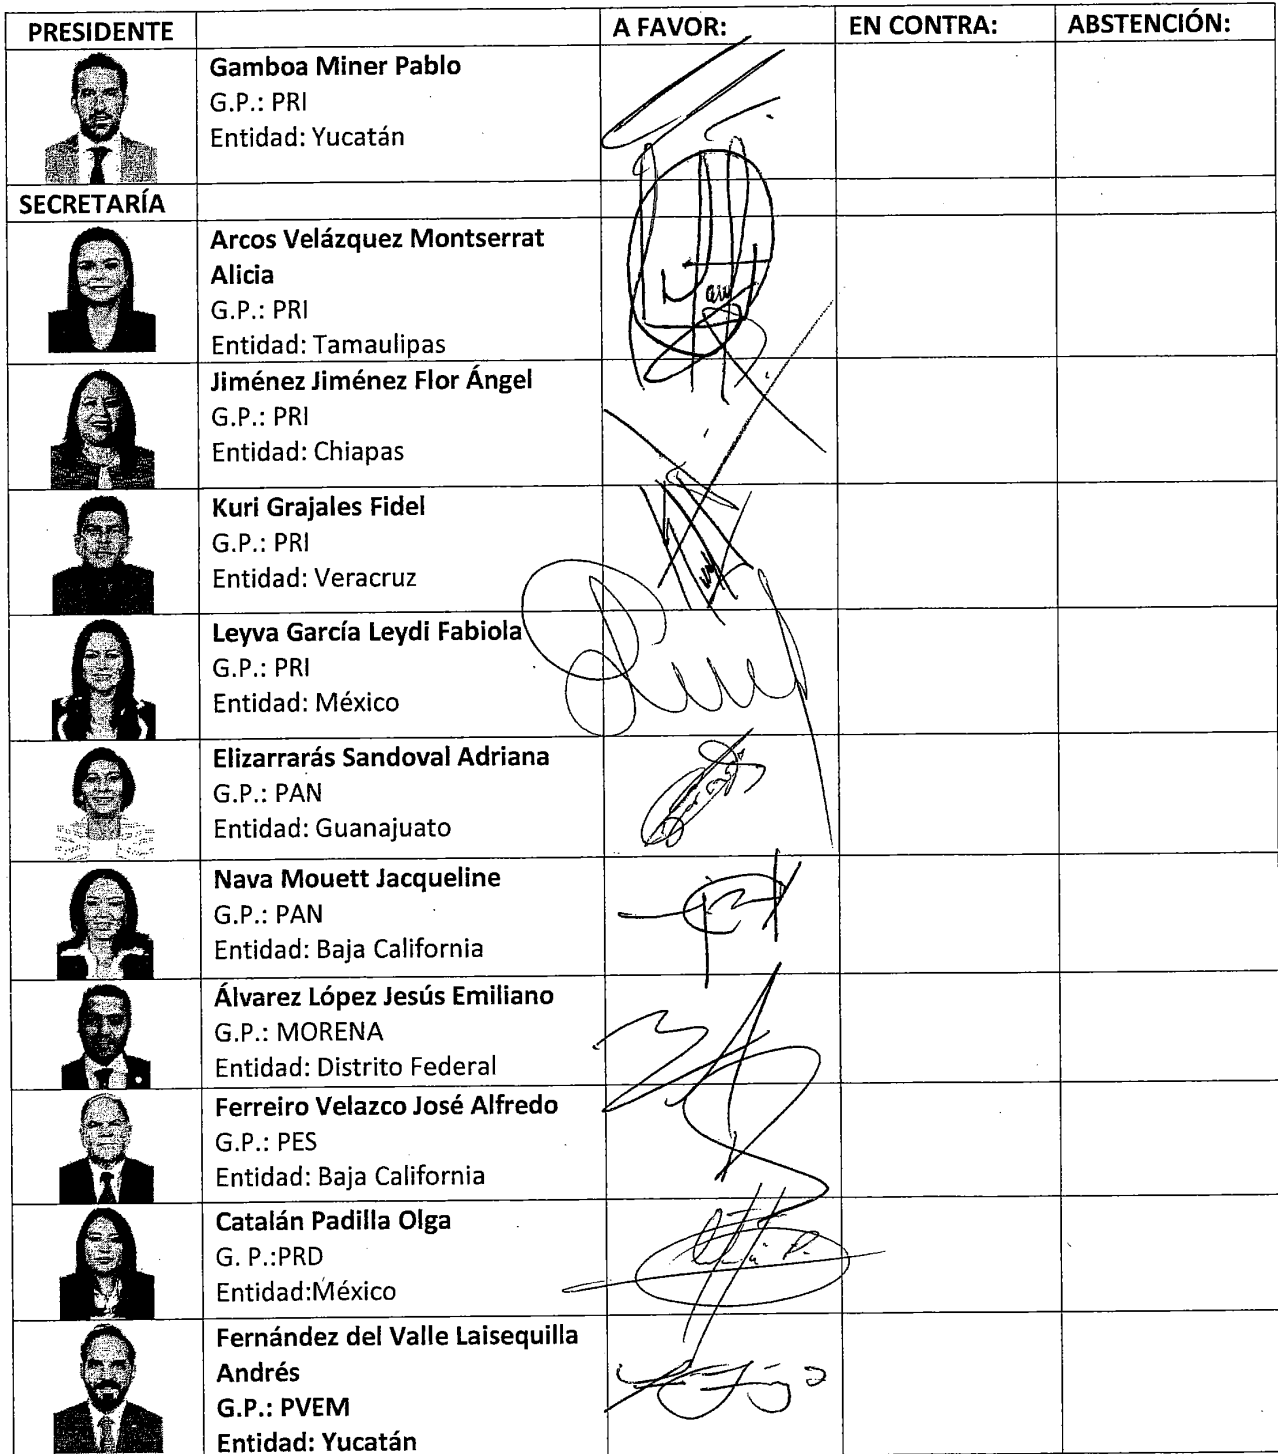 PRESIDENTE A FAVOR: EN CONTRA: ABSTENCIÓN:
Gamboa Miner Pablo
G.P.: PRI
Entidad: Yucatán
SECRETARÍA
Arcos Velázquez Montserrat
Alicia
G.P.: PRI
Entidad: Tamaulipas
Jiménez Jiménez Flor Ángel
G.P.: PRI
Entidad: Chiapas
Kuri Grajales Fidel
G.P.: PRI
Entidad: Veracruz
Leyva García Leydi Fabiola
G.P.: PRI
Entidad: México
Elizarrarás Sandoval Adriana
G.P.: PAN
Entidad: Guanajuato
Nava Mouett Jacqueline
G.P.: PAN
Entidad: Baja California
Álvarez López Jesús Emiliano
G.P.: MORENA
Entidad: Distrito Federal
Ferreiro Velazco José Alfredo
G.P.: PES
Entidad: Baja California
Catalán Padilla Olga
G. P.:PRD
Entidad:México
Fernández del Valle Laisequilla
Andrés
G.P.: PVEM
Entidad: Yucatán